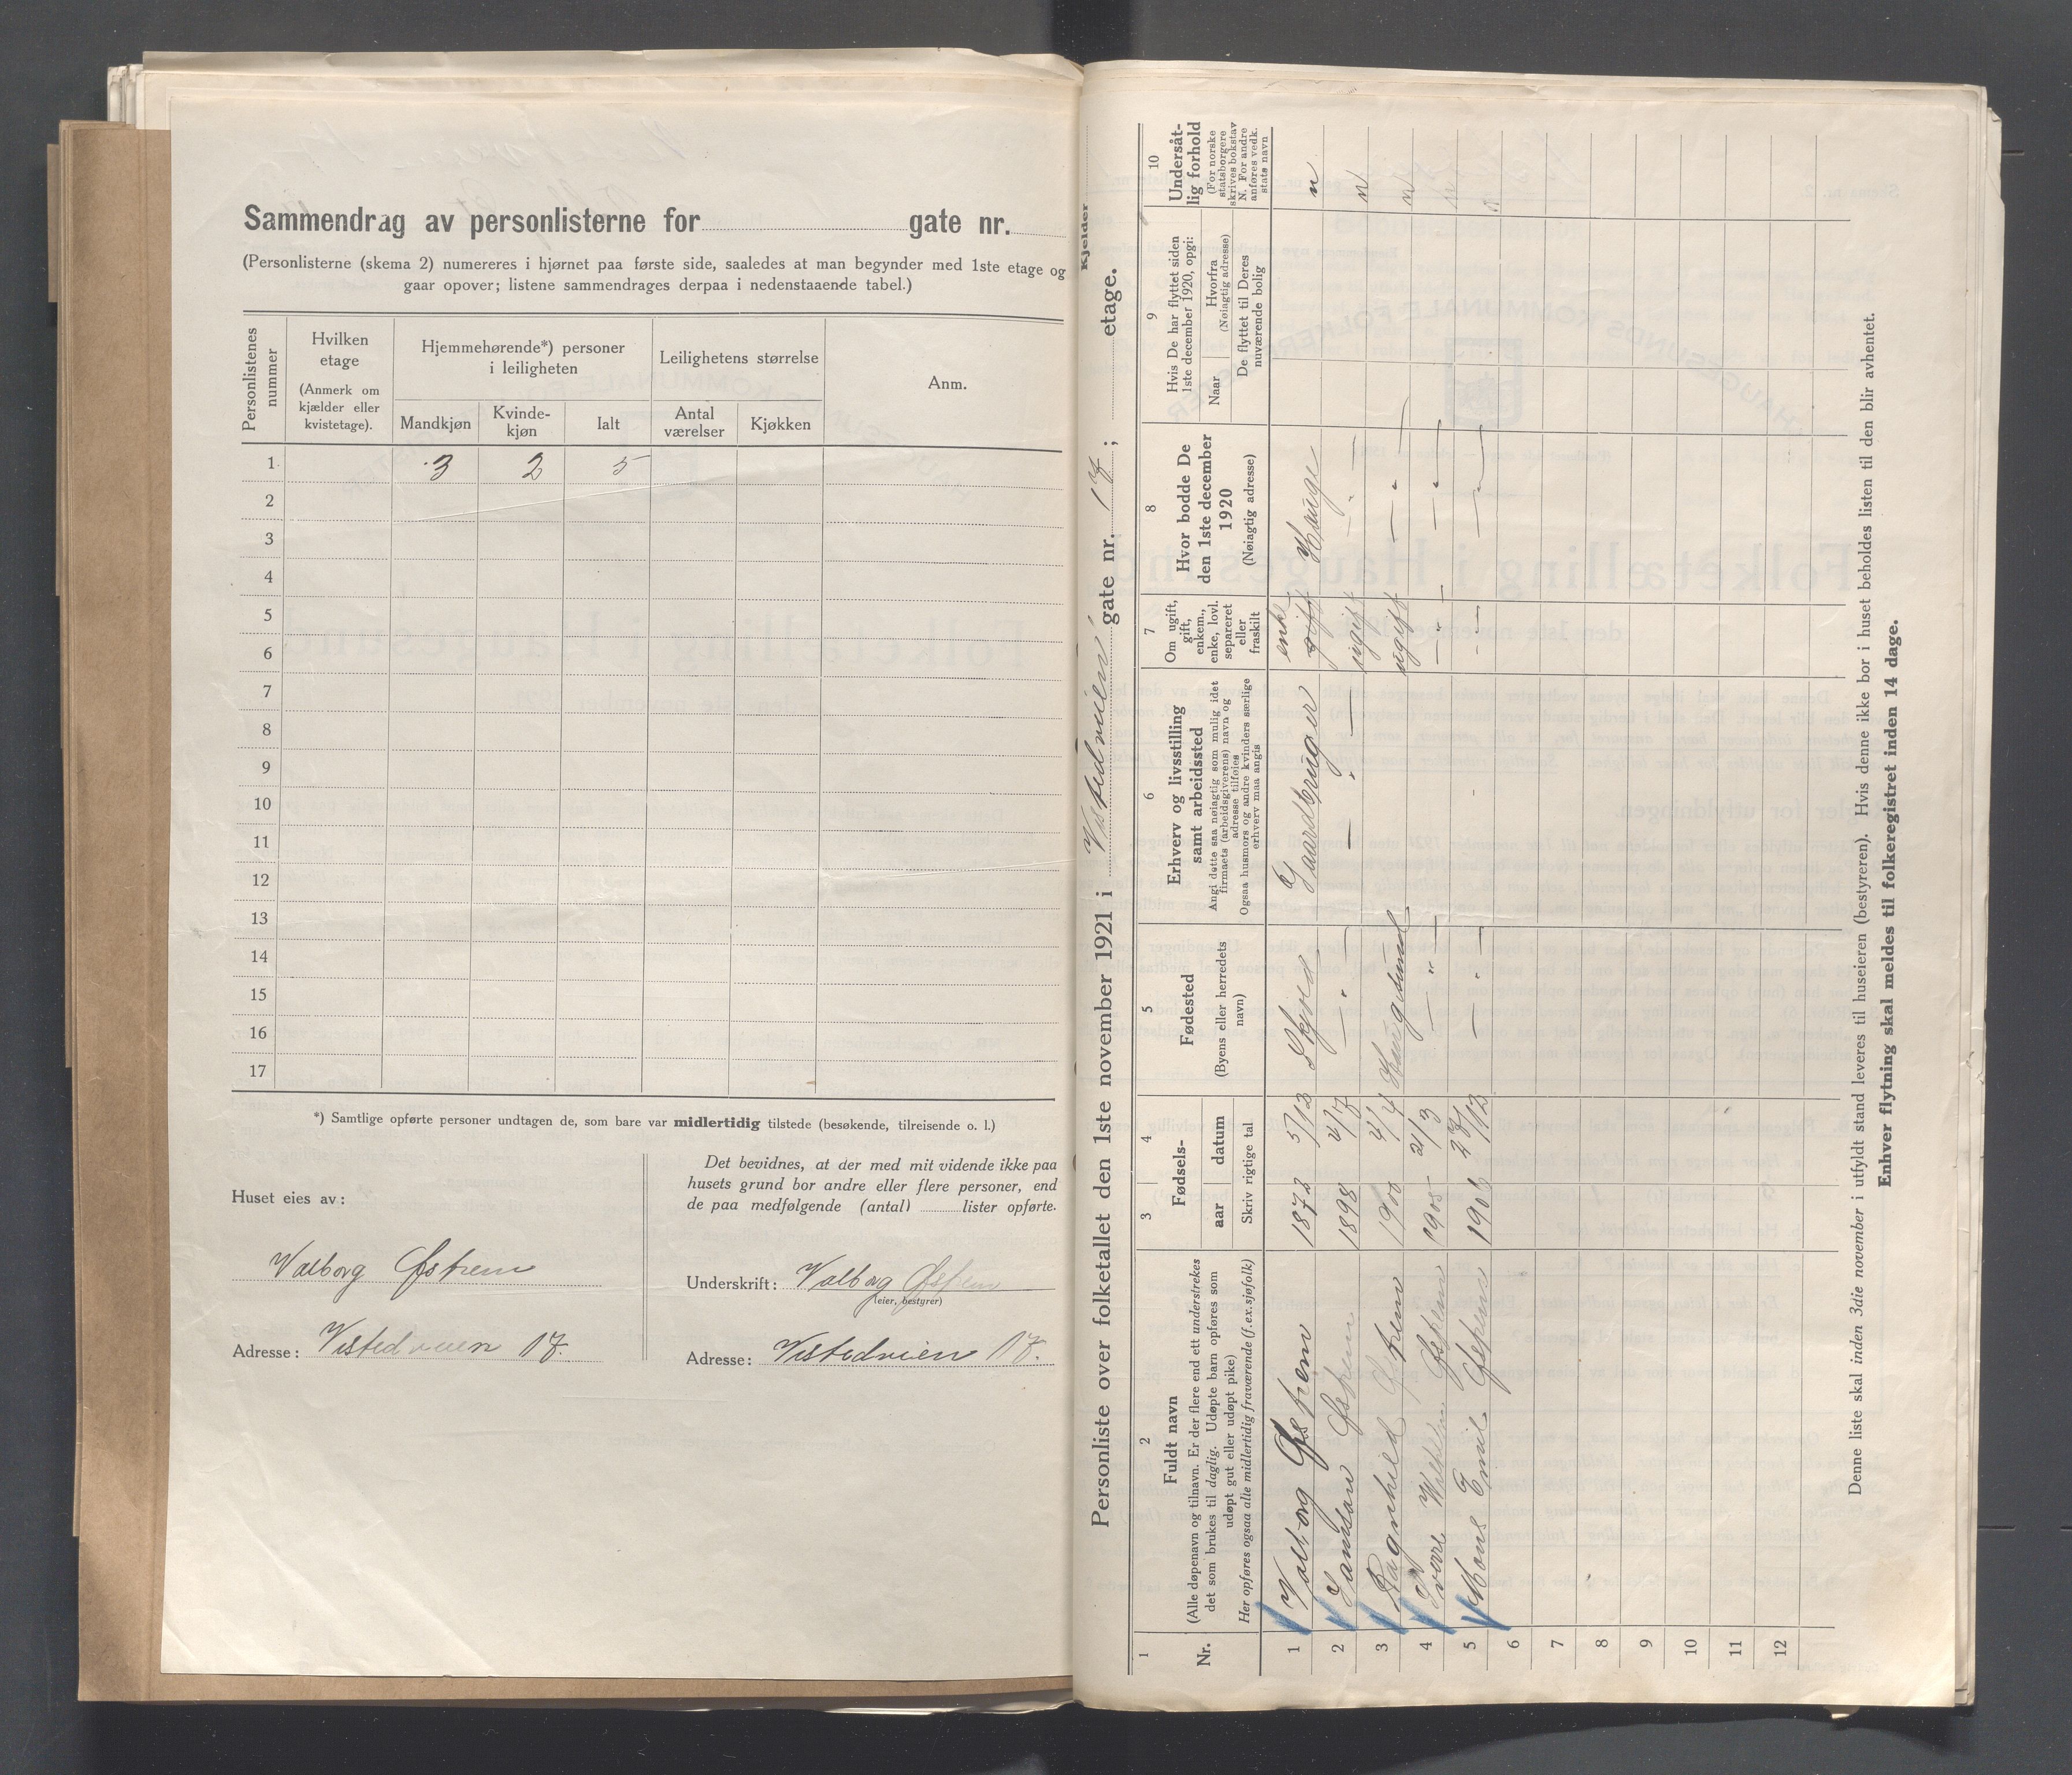 Sammendrag av personlisterne for gate nr.
(Personlisterne (skema 2) numereres i hjørnet paa første side, saaledes at man begynder med 1ste etage og
gaar opover; listene sammendrages derpaa i nedenstaaende tabel.)
Personlistenes nummer
Hvilken etage
(Anmerk om kjælder eller kvistetage).
Hjemmehørende*) personer i leiligheten
Leilighetens størrelse
Anm.
Mandkjøn
Kvinde-kjøn
Ialt
Antal værelser
Kjøkken
1 3 2 5
2
3
4
5
6
7
8
9
10
11
12
13
14
15
16
17
*) Samtlige opførte personer undtagen de, som bare var midlertidig tilstede (besøkende, tilreisende o. l.)
Huset eies av:
Valborg Østrem
Adresse: Vistedveien 17.
Det bevidnes, at der med mit vidende ikke paa
husets grund bor andre eller flere personer, end
de paa medfølgende (antal) lister opførte.
Underskrift: Valborg Østrem
(eier, bestyrer)
Adresse: Vistedveien 17.
Personliste over folketallet den 1ste november 1921 i Vistedveien gate nr. 17; etage.
Kjelder
1
Nr.
2
Fuldt navn
(Alle døpenavn og tilnavn. Er der flere end ett understrekes
det som brukes til daglig. Udøpte barn opføres som
udøpt gut eller udøpt pike)
Her opføres ogsaa alle midlertidig fraværende (f.ex. sjøfolk)
3 4
Fødsels-
aar datum
Skriv rigtige tal
5
Fødested
(Byens eller herredets navn)
6
Erhverv og livsstilling
samt arbeidssted
Angi dette saa nøiagtig som mulig idet
firmaets (arbeidsgiverens) navn og
adresse tilføies
Ogsaa husmors og andre kvinders særlige
erhverv maa angis
7
Om ugift, gift, enkem., enke, lovl. separeret eller fraskilt
8
Hvor bodde De
den 1ste december
1920
(Nøiagtig adresse)
9
Hvis De har flyttet siden
1ste december 1920, opgi:
Naar
Hvorfra
(Nøiagtig adresse)
De flyttet til Deres
nuværende bolig
10
Undersåt-
lig forhold
(For norske
statsborgere
skrives bokstav
N. For andre
anføres vedk.
stats navn
1 Valborg Østrem 1872 5/12 Skjold enke gift Hauge n
2 Østrem 1898 ugift n
3 Ragnhild Østrem 1900 4/4 Haugesund ugift n
4 Østrem 1905 21/3 n
5 Emil Østrem 1906
6
7
8
9
10
11
12
Denne liste skal inden 3die november i utfyldt stand leveres til huseieren (bestyreren). Hvis denne ikke bor i huset beholdes listen til den blir avhentet.
Enhver flytning skal meldes til folkeregistret inden 14 dage.